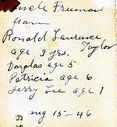 Uncle Truman
from
Ronald Laurence
Taylor
age 9 yrs.
Douglas age 5
Patricia age 6
Jerry Lee age 1
aug 15-46